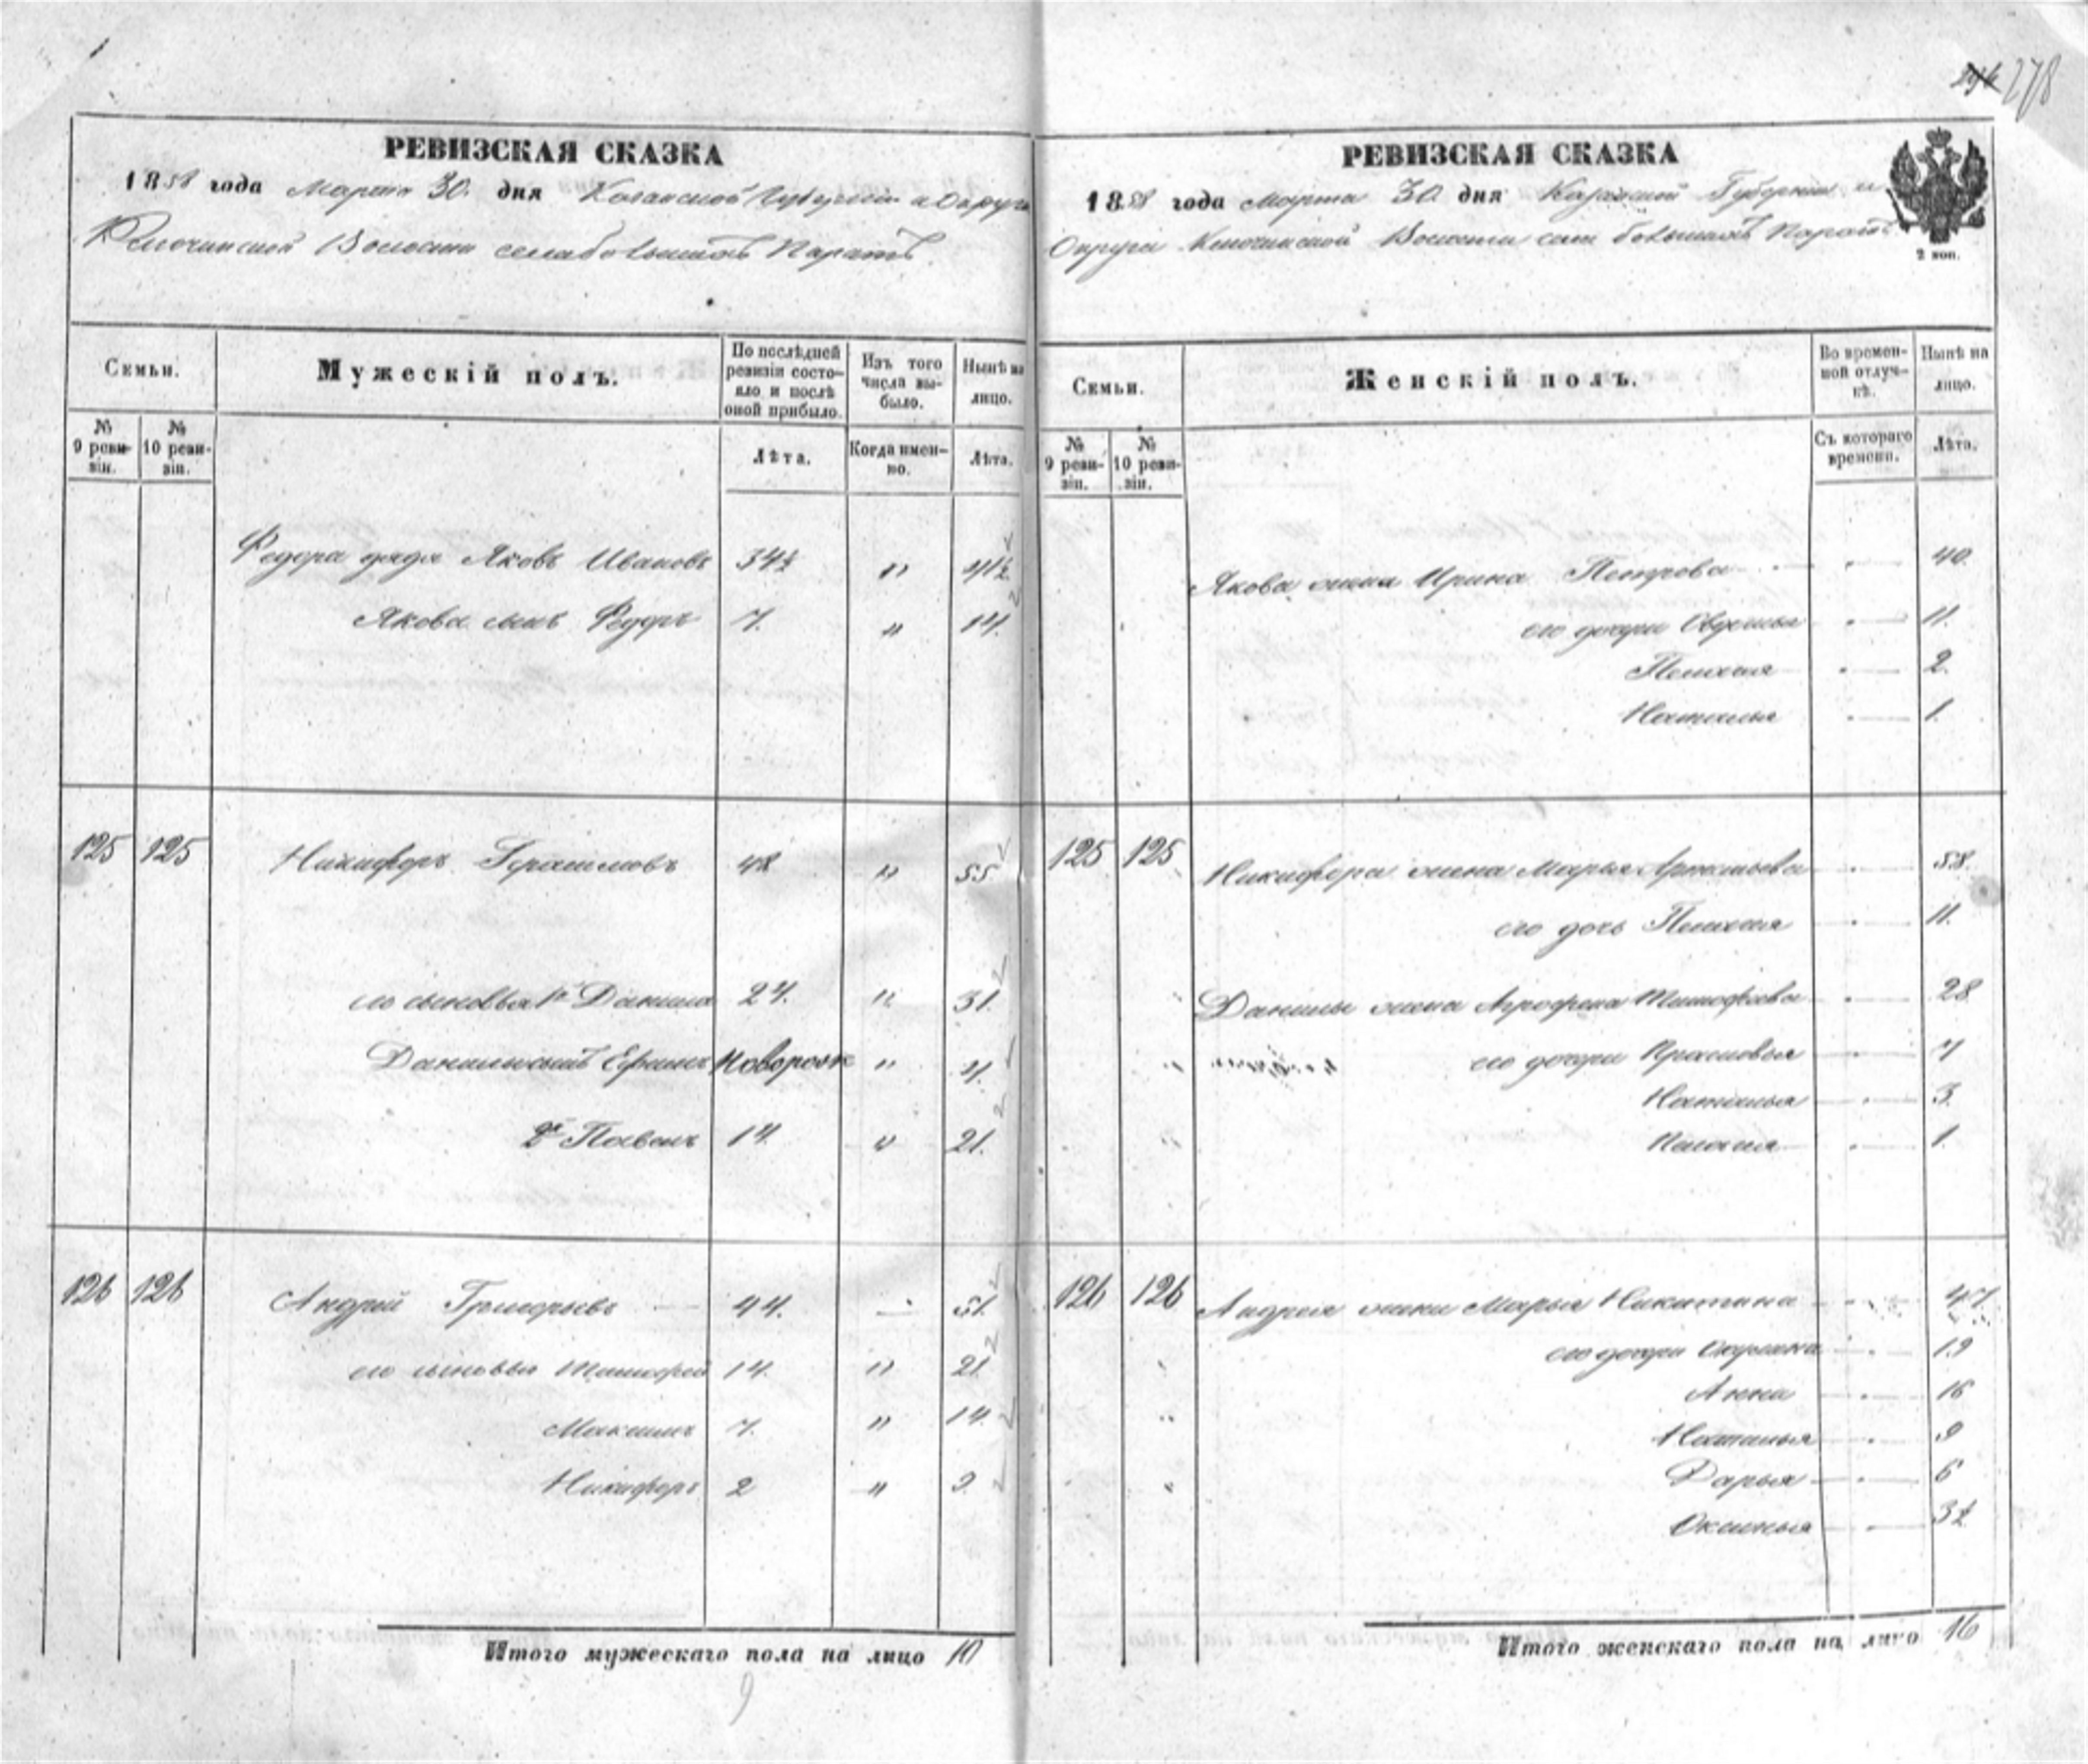 278
РЕВИЗСКАЯ СКАЗКА
1858 года Марта 30. дня Казанской Губернiи и Округи
Ключинской Волости села большихъ Паратъ
Семьи.
Мужескiй полъ.
По послѣдней ревизiи состояло и послѣ оной прибыло.
Изъ того числа выбыло.
Нынѣ на лицо.
№ 9 ревизiи.
№ 10 ревизiи.
Лѣта.
Когда именно.
Лѣта.
Федора дядя Яковъ Ивановъ 34½ " 41½
Якова сынъ Федоръ 7. " 14.
125 125 Никифоръ Герасимовъ 48 " 55
его сыновья 1й Данила 24. " 31.
Данилы сынъ Ефимъ новорож " 7.
2й Павелъ 14. " 21.
126 126 Андрей Григорьевъ 44. — 51.
его сыновья Тимофей 14. " 21.
Максимъ 7. " 14.
Никифоръ 2 " 9.
Итого мужескаго пола на лицо 10
9
РЕВИЗСКАЯ СКАЗКА
1858 года Марта 30. дня Казанской Губернiи и
Округи Ключинской Волости села большихъ Паратъ
2 коп.
Семьи.
Женскiй полъ.
Во временной отлучкѣ.
Нынѣ на лицо.
№ 9 ревизiи.
№ 10 ревизiи.
Съ котораго времени.
Лѣта.
Якова жена Ирина Петрова 40.
его дочери Овдотья 11.
Пелагея 2.
Наталья 1.
125 125 Никифора жена Марья Артемьева 58.
его дочь Пелагея 11.
Данилы жена Агрофена Тимофеева 28
его дочери Прасковья 7
Наталья 3.
Пелагея 1.
126 126 Андрея жена Марья Никитина 47.
его дочери Окулина 19
Анна 16
Наталья 9
Дарья 6
Оксинья 3½
Итого женскаго пола на лицо 16